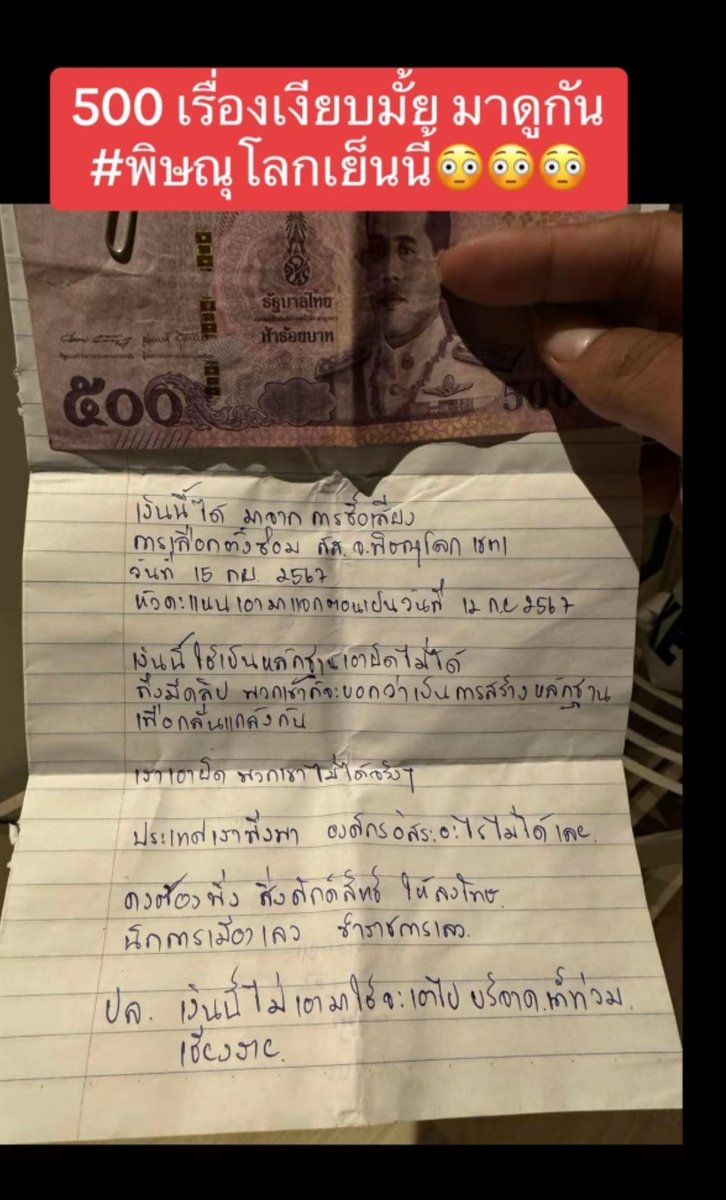 500 เรื่องเงียบมั้ย มาดูกัน
#พิษณุโลกเย็นนี้😳😳😳
รัฐบาลไทย
ห้าร้อยบาท
๕๐๐
500
เงินนี้ได้ มาจาก การซื้อเสียง
การเลือกตั้งซ่อม สส. จ.พิษณุโลก เขต1
วันที่ 15 กย. 2567
หัวคะแนนเอามาแจกตอนเย็นวันที่ 12 ก.ย 2567
เงินนี้ใช้เป็นหลักฐานเอาผิดไม่ได้
ถึงมีคลิป พวกเขาก็จะบอกว่าเป็นการสร้างหลักฐาน
เพื่อกลั่นแกล้งกัน
เราเอาผิด พวกเขาไม่ได้จริงๆ
ประเทศเราพึ่งพา องค์กรอิสระอะไรไม่ได้เลย
คงต้องพึ่ง สิ่งศักดิ์สิทธิ์ ให้ลงโทษ
นักการเมืองเลว ข้าราชการเลว
ปล. เงินนี้ไม่เอามาใช้จะเอาไป บริจาค.น้ำท่วม
เชียงราย.